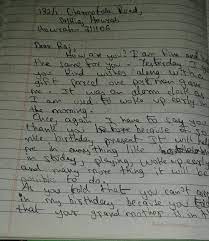 192/1 Champatala Road,
Howrah
Howrah - 711106
Dear Raj,
How are you? I am fine and
the same for you. Yesterday
your kind wishes along with
gift parcel one portman gave
me. It was an alarm clock
I am used to wake up early
the morning.
Once again I have to say
thank you because of
nice birthday present. It will
me in many thing like
in study, playing, wake up early
and many more thing it will be
by do.
As you told that you can't
in my birthday because you
that your grand mother is in